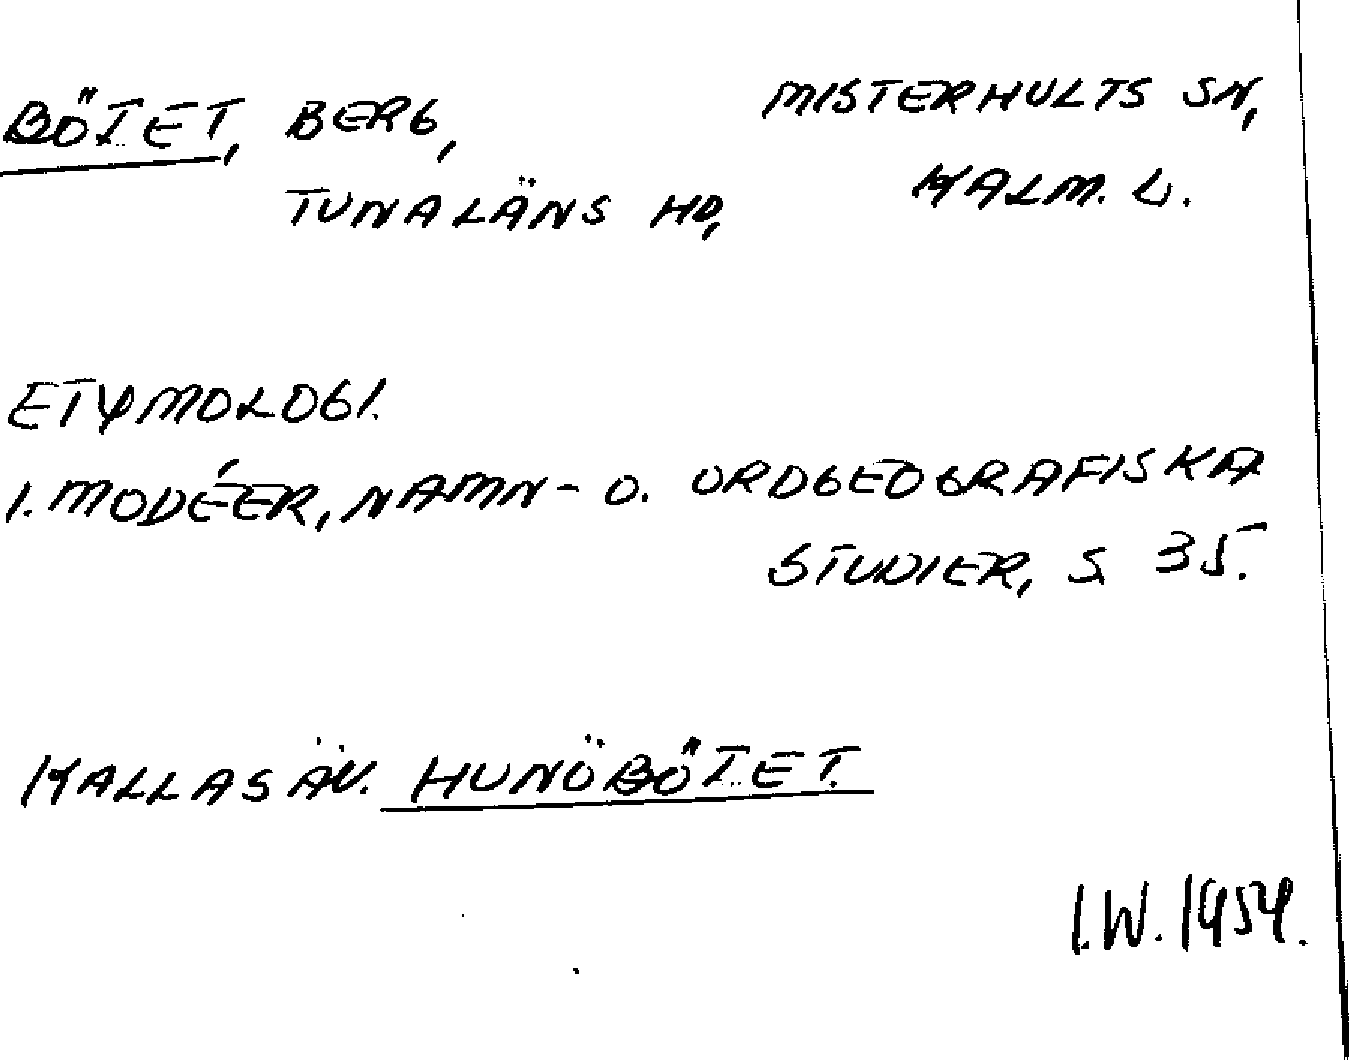 BÖTET, BERG, MISTERHULTS SN,
TUNALÄNS HD, KALM. L.
ETYMOLOGI.
I. MODÉER, NAMN- O. ORDGEOGRAFISKA
STUDIER, S 35.
KALLAS ÄV. HUNÖBÖTET.
I.W. 1954.